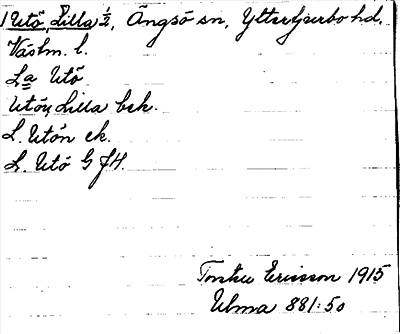 1 Utö, Lilla ½, Ängsö sn, Yttertjurbo hd,
Västm. l.
La Utö
Utön, Lilla bsk.
L. Utön ek.
L. Utö G JH.
Torsten Ericsson 1915
Ulma 881:50